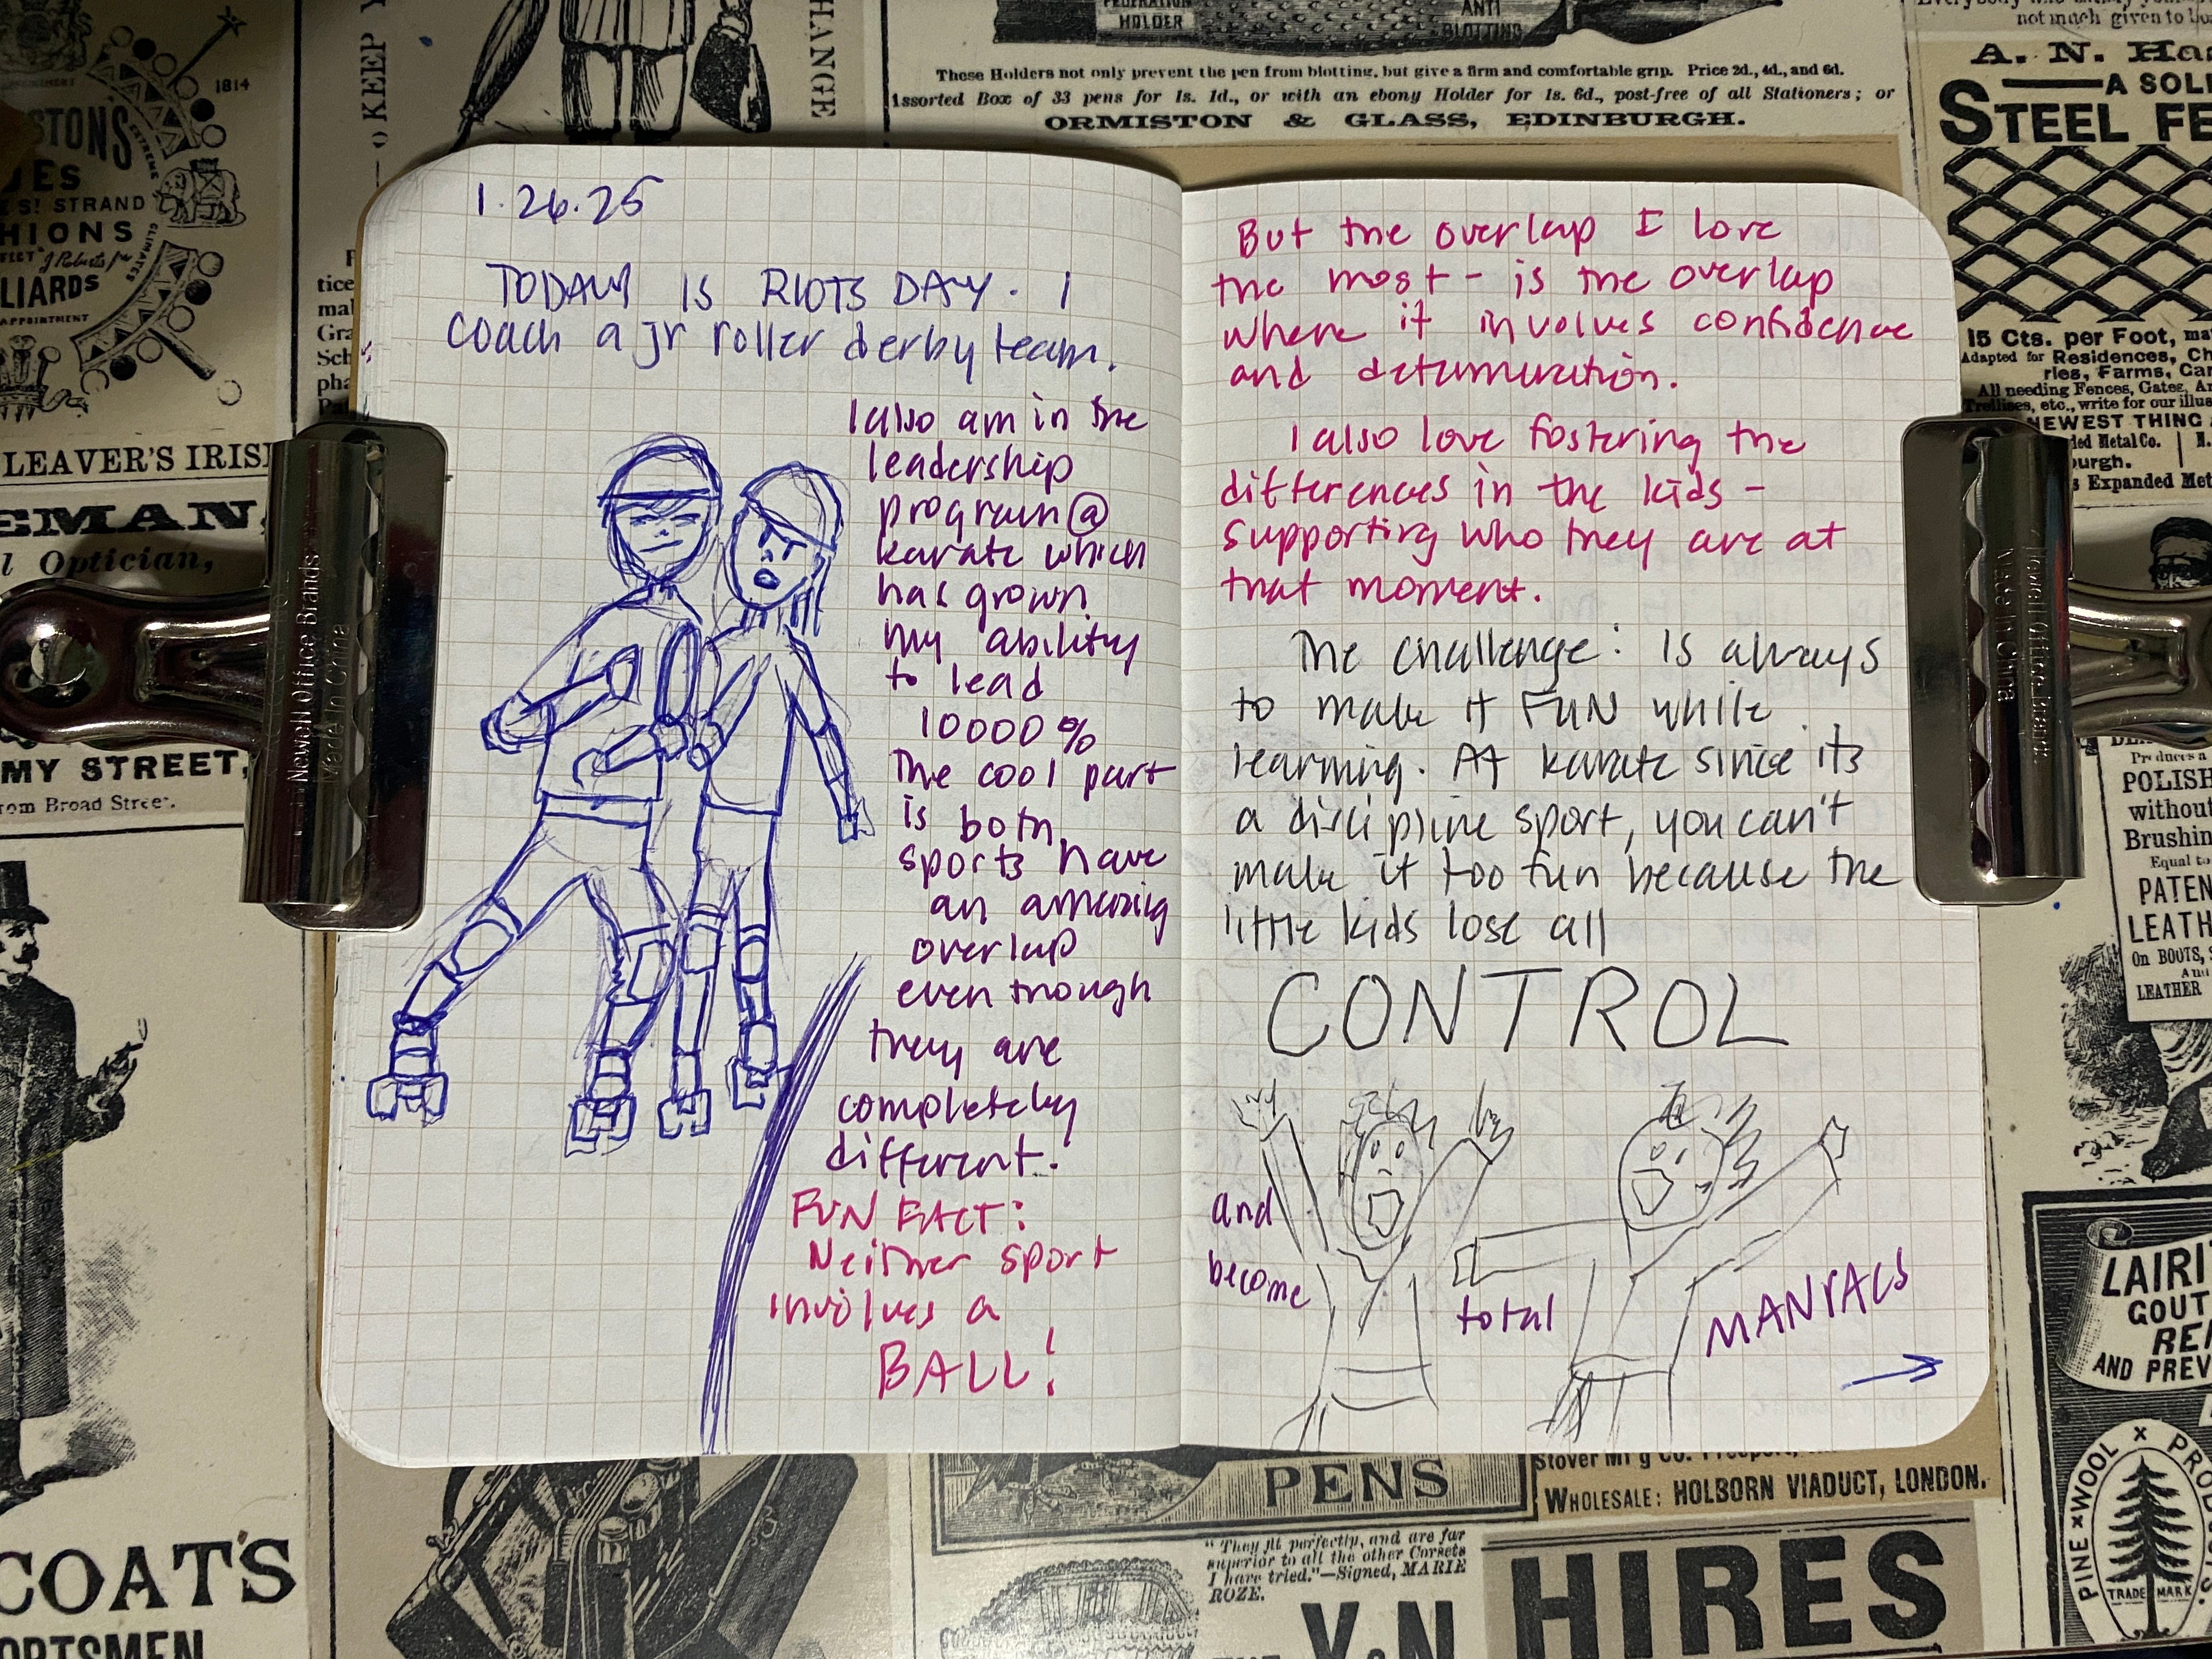 1.26.25
TODAY IS RIOTS DAY. I
coach a jr roller derby team.
I also am in the
leadership
program @
karate which
has grown
my ability
to lead
10000 %
The cool part
is both
sports have
an amazing
overlap
even though
they are
completely
different.
FUN FACT:
Neither sport
involves a
BALL!
But the overlap I love
the most - is the overlap
where it involves confidence
and determination.
I also love fostering the
differences in the kids -
supporting who they are at
that moment.
The challenge: Is always
to make it FUN while
learning. At karate since its
a discipline sport, you can't
make it too fun because the
little kids lose all
CONTROL
and
become
total
MANIACS
1814
STRAND
LIARDS
APPOINTMENT
LEAVER'S
EMAN,
Optician,
MY STREET,
from Broad Street.
COAT'S
KEEP
HOLDER
ANTI
BLOTTING
These Holders not only prevent the pen from blotting, but give a firm and comfortable grip. Price 2d., 4d., and 6d.
Assorted Box of 33 pens for 1s. 1d., or with an ebony Holder for 1s. 6d., post-free of all Stationers; or
ORMISTON & GLASS, EDINBURGH.
not much given to
A. N.
A SOL
STEEL FE
15 Cts. per Foot,
Adapted for Residences,
Farms,
All needing Fences, Gates,
etc., write for our
NEWEST THING
Expanded
Newell Office Brands
Made in China
Newell Office Brands
Made in China
Produces a
POLISH
without
Brushin
Equal to
PATEN
LEATH
On BOOTS,
And
LEATHER
LAIRI
GOUT
RE
AND PREV
PINE x WOOL x PRO
TRADE MARK
PENS
Stover
WHOLESALE: HOLBORN VIADUCT, LONDON.
"They fit perfectly, and are far
superior to all the other Corsets
I have tried."—Signed, MARIE
ROZE.
HIRES